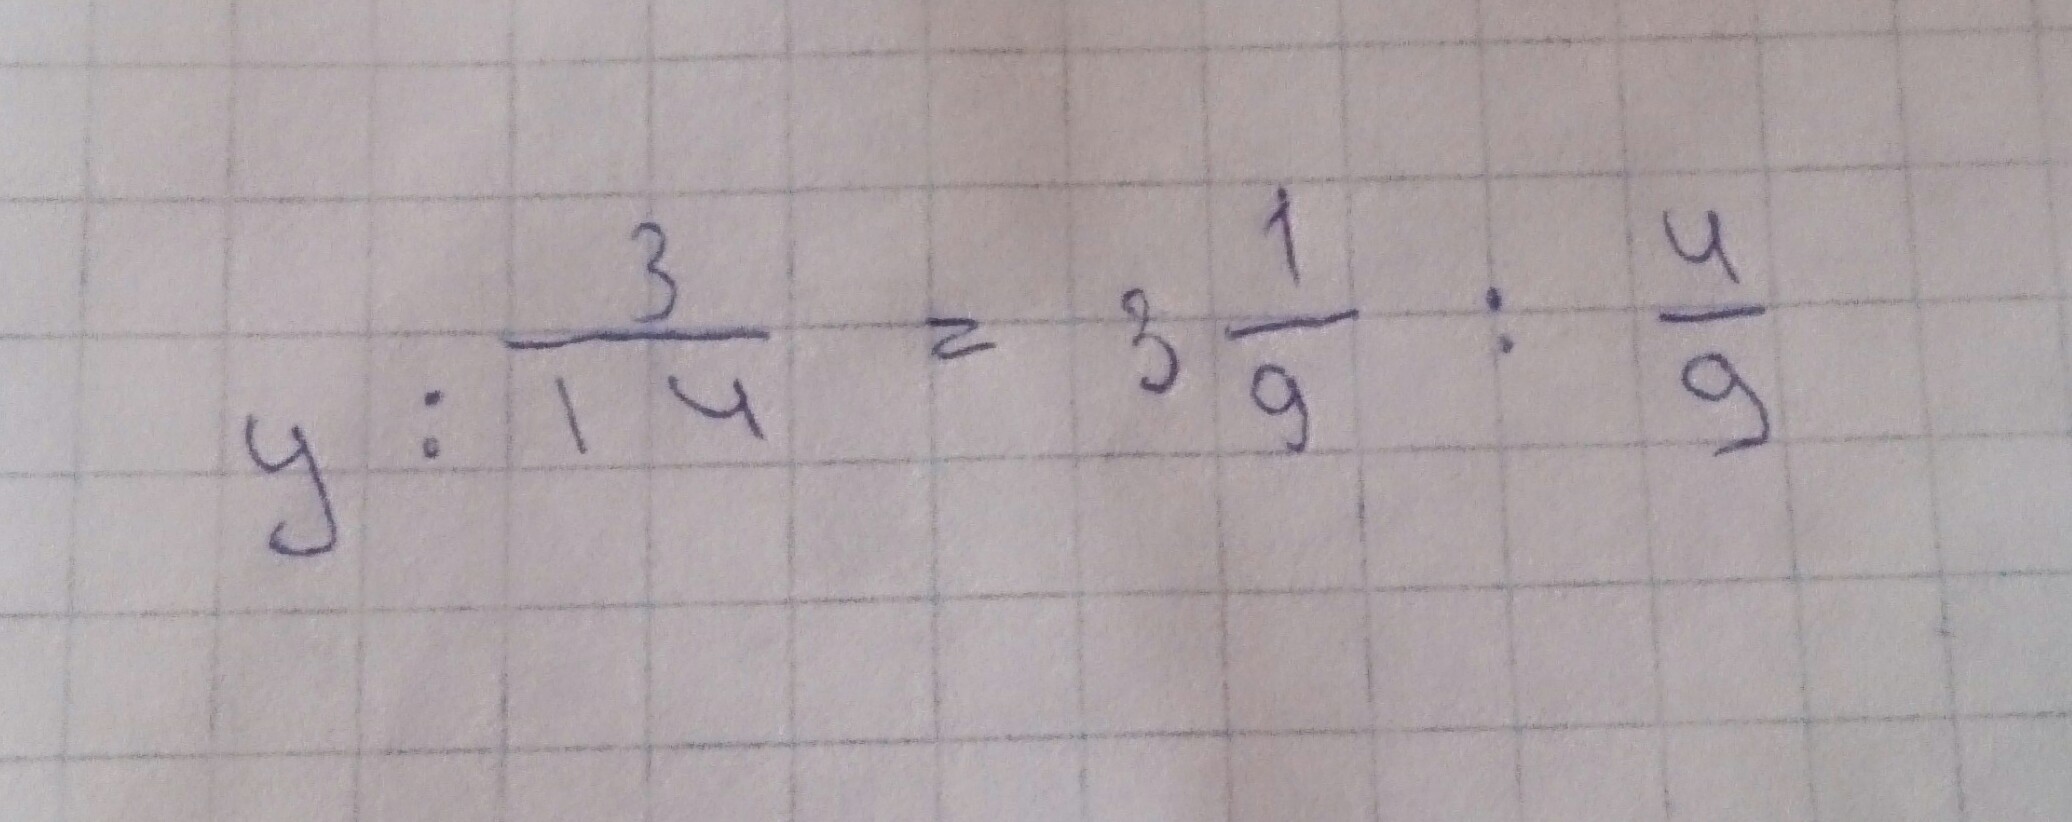 y : 3/14 = 3 1/9 : 4/9